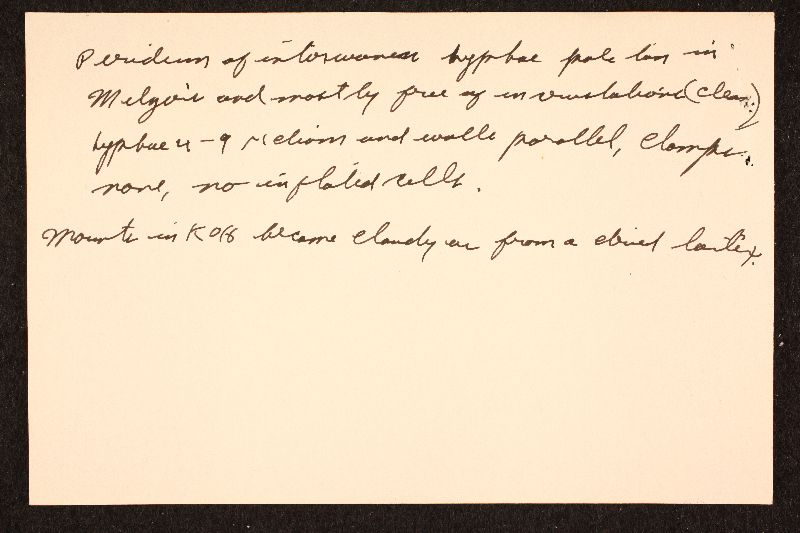 Peridium of interwoven hyphae pale tan in
Melzer's and mostly free of incrustations (clean.)
hyphae 4-9 µ diam and walls parallel, clamps
none, no inflated cells.
Mounts in KOH become cloudy as from a dried latex.